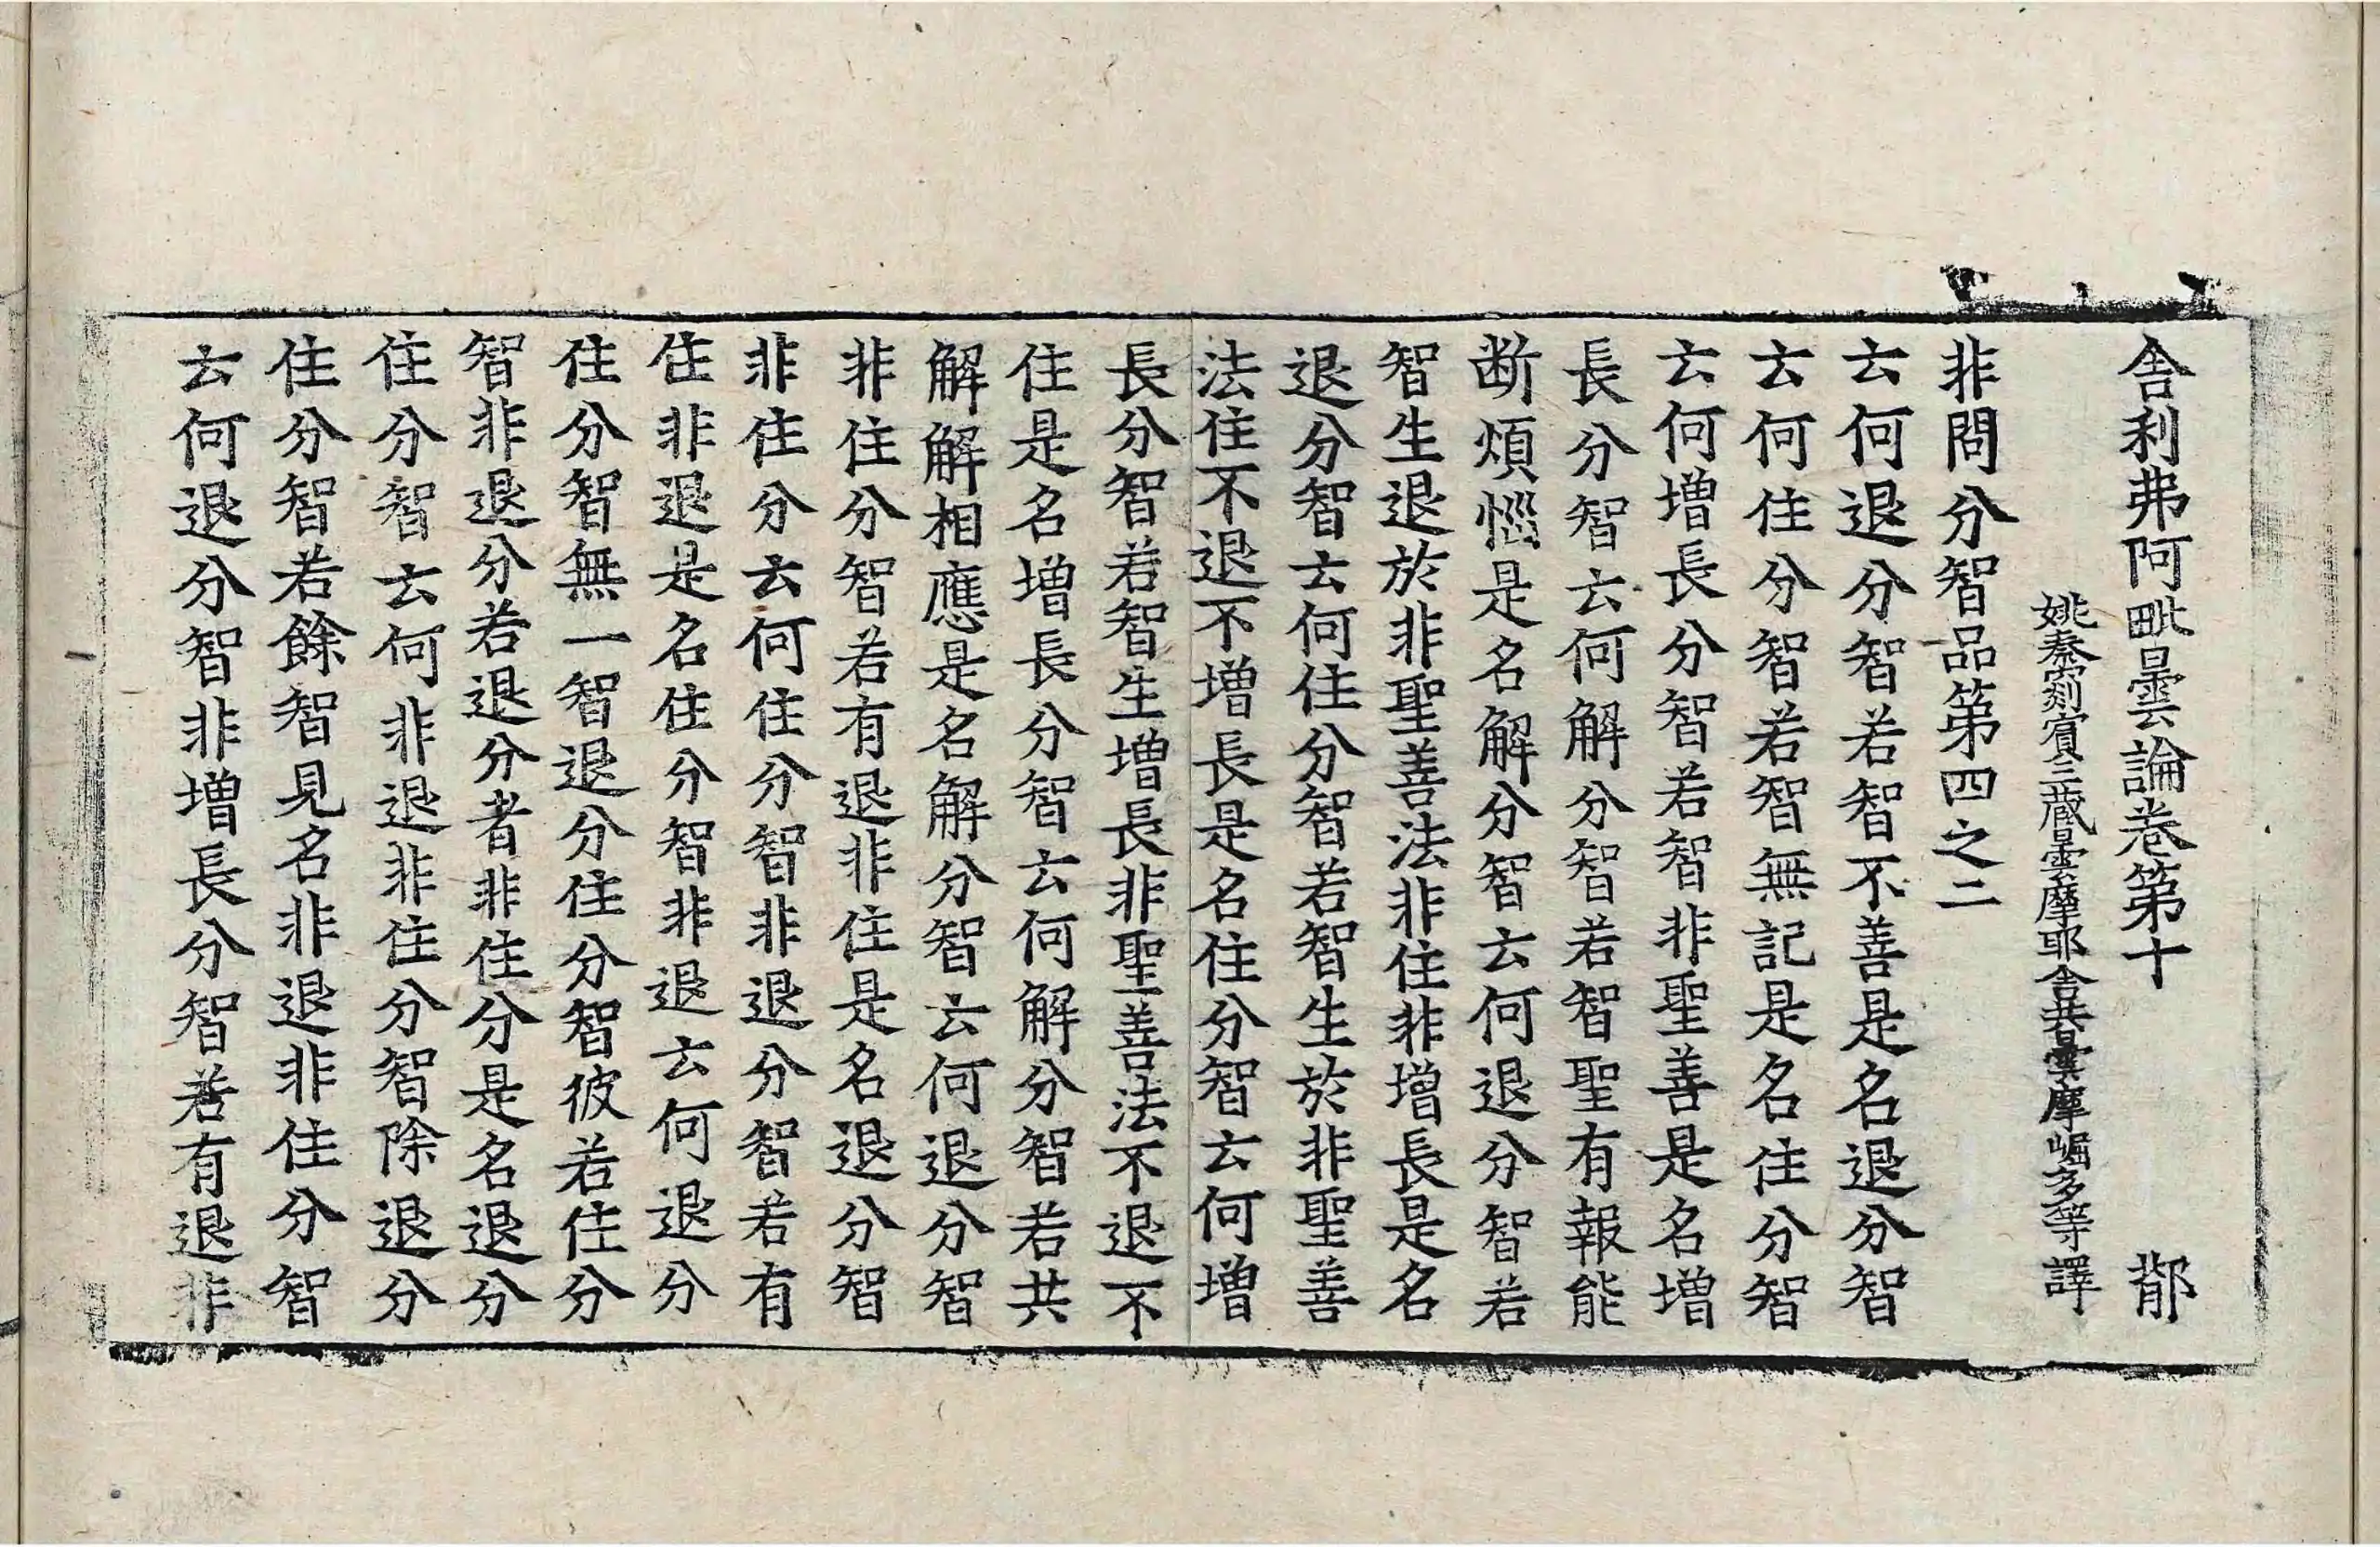 舎利弗阿毗曇論卷第十 鄁
姚秦罽賓三藏曇摩耶舍共曇摩崛多等譯
非問分智品第四之二
云何退分智若智不善是名退分智
云何住分智若智無記是名住分智
云何增長分智若智非聖善是名增
長分智云何解分智若智聖有報能
断煩惱是名解分智云何退分智若
智生退於非聖善法非住非增長是名
退分智云何住分智若智生於非聖善
法住不退不增長是名住分智云何增
長分智若智生增長非聖善法不退不
住是名增長分智云何解分智若共
解解相應是名解分智云何退分智
非住分智若有退非住是名退分智
非住分云何住分智非退分智若有
住非退是名住分智非退云何退分
住分智無一智退分住分智彼若住分
智非退分若退分者非住分是名退分
住分智云何非退非住分智除退分
住分智若餘智見名非退非住分智
云何退分智非增長分智若有退非